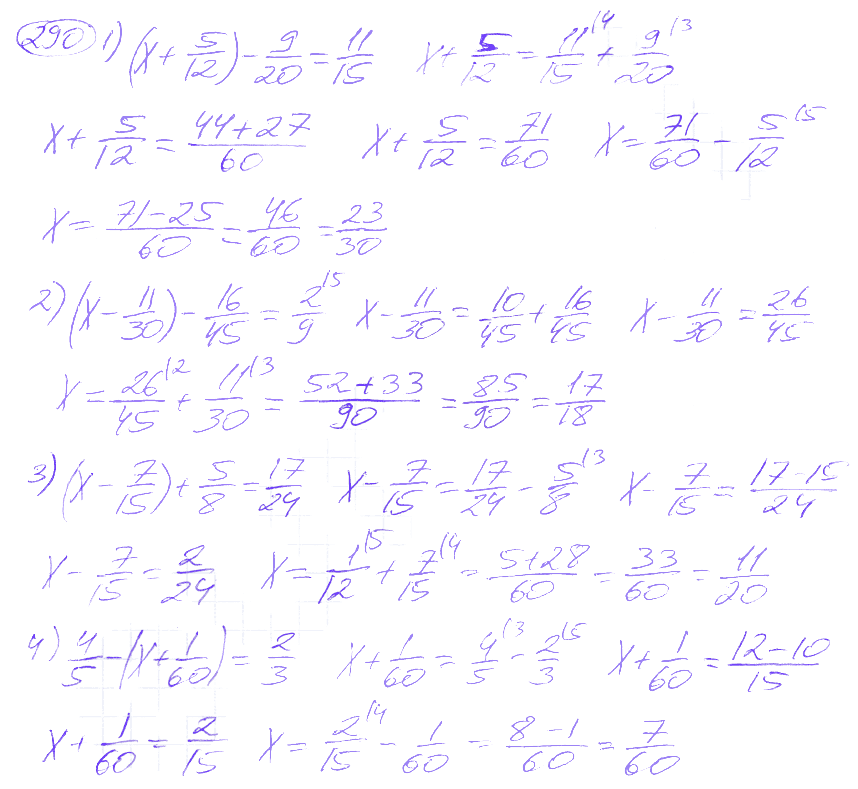 290 1) (x + 5/12) - 9/20 = 11/15   x + 5/12 = 11/15 \4 + 9/20 \3
x + 5/12 = (44+27)/60   x + 5/12 = 71/60   x = 71/60 - 5/12 \5
x = (71-25)/60 = 46/60 = 23/30
2) (x - 11/30) - 16/45 = 2/9 \5   x - 11/30 = 10/45 + 16/45   x - 11/30 = 26/45
x = 26/45 \2 + 11/30 \3 = (52+33)/90 = 85/90 = 17/18
3) (x - 7/15) + 5/8 = 17/24   x - 7/15 = 17/24 - 5/8 \3   x - 7/15 = (17-15)/24
x - 7/15 = 2/24   x = 1/12 \5 + 7/15 \4 = (5+28)/60 = 33/60 = 11/20
4) 4/5 - (x + 1/60) = 2/3   x + 1/60 = 4/5 \3 - 2/3 \5   x + 1/60 = (12-10)/15
x + 1/60 = 2/15   x = 2/15 \4 - 1/60 = (8-1)/60 = 7/60